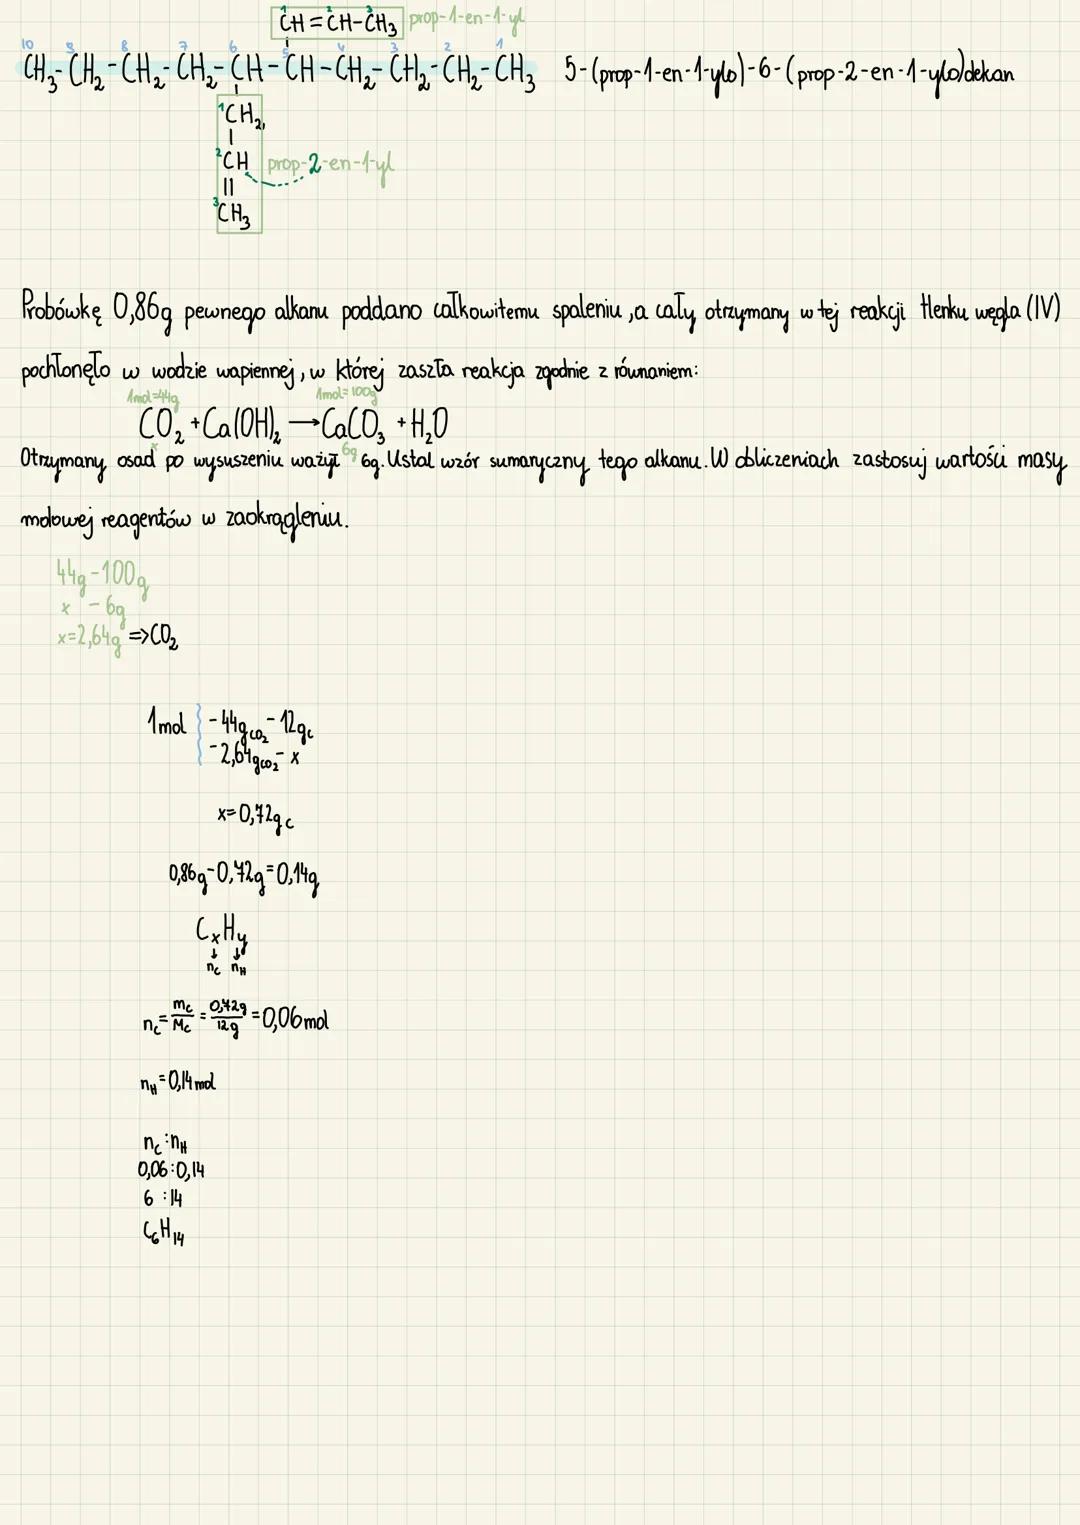 ¹CH=²CH-³CH₃ prop-1-en-1-yl
10 9 8 7 6 5 4 3 2 1
CH₃-CH₂-CH₂-CH₂-CH-CH-CH₂-CH₂-CH₂-CH₃ 5-(prop-1-en-1-ylo)-6-(prop-2-en-1-ylo)dekan
¹CH₂
²CH prop-2-en-1-yl
||
³CH₃
Probówkę 0,86g pewnego alkanu poddano całkowitemu spaleniu, a cały otrzymany w tej reakcji tlenku węgla (IV)
pochłonęło w wodzie wapiennej, w której zaszła reakcja zgodnie z równaniem:
1mol=44g 1mol=100g
CO₂+Ca(OH)₂→CaCO₃+H₂O
x 6g
Otrzymany osad po wysuszeniu ważył 6g. Ustal wzór sumaryczny tego alkanu. W obliczeniach zastosuj wartości masy
molowej reagentów w zaokrągleniu.
44g-100g
x - 6g
x=2,64g =>CO₂
1mol { -44g CO₂ - 12g C
-2,64g CO₂ - x
x=0,72g C
0,86g-0,72g=0,14g
CₓHᵧ
↓ ↓
nC nH
nC=mC/MC=0,72g/12g=0,06mol
nH=0,14mol
nC:nH
0,06:0,14
6 :14
C₆H₁₄